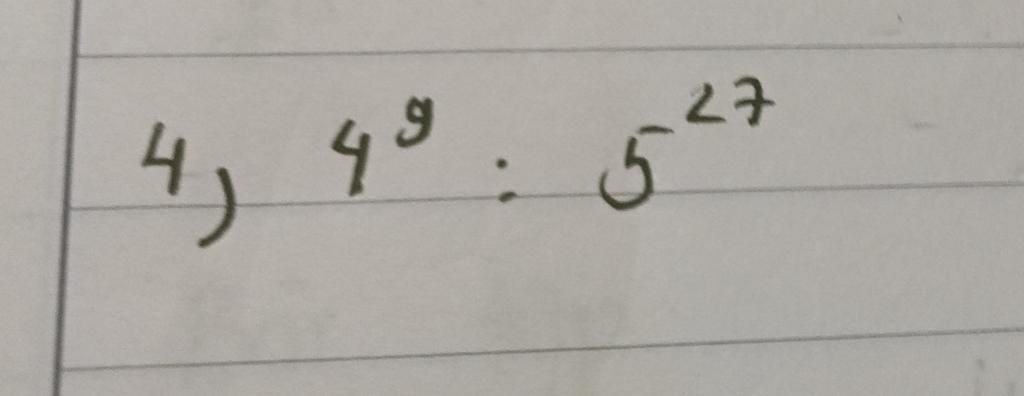 4) 4⁹ : 5²⁷